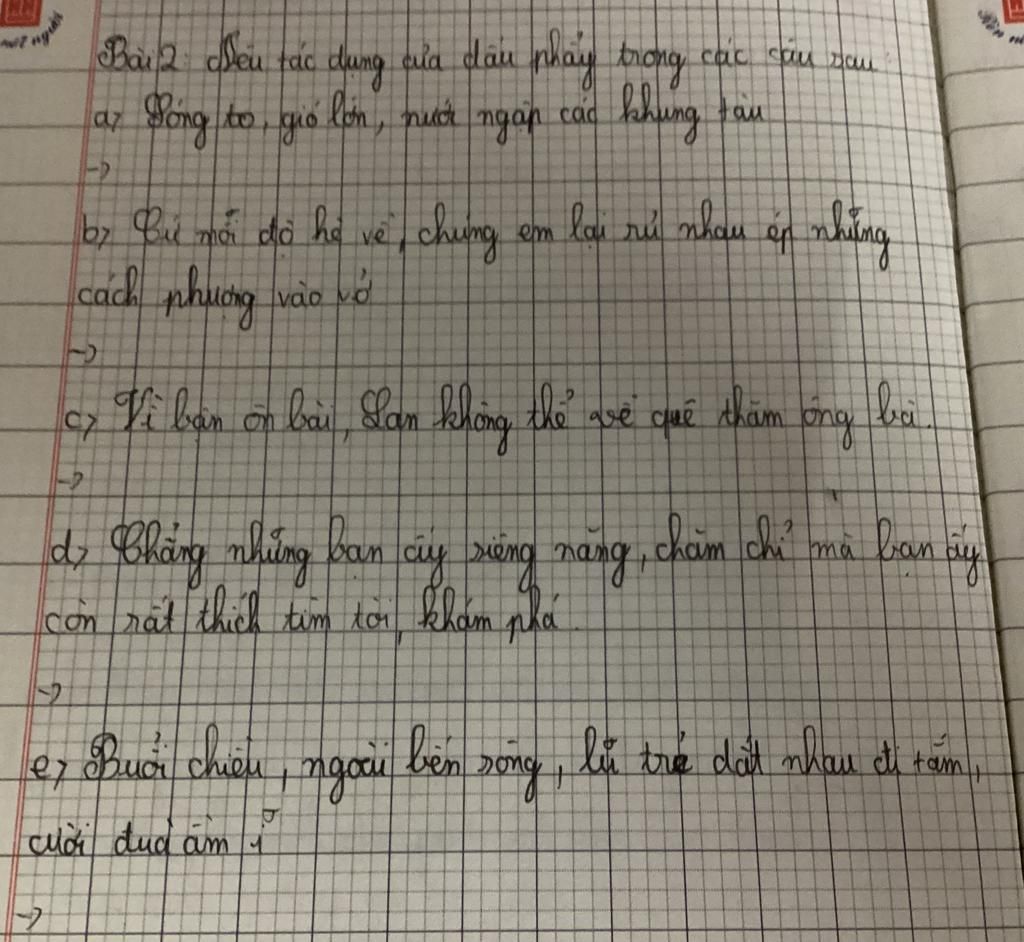 một người
Bài 2: Nêu tác dụng của dấu phẩy trong các câu sau
a, Sóng to, gió lớn, nước ngập các khung tàu
->
b, Cứ mỗi độ hè về, chúng em lại rủ nhau ép những
cách phượng vào vở
->
c, Vì bận ôn bài, Lan không thể về quê thăm ông bà.
->
d, Chẳng những bạn ấy siêng năng, chăm chỉ mà bạn ấy
còn rất thích tìm tòi, khám phá.
->
e, Buổi chiều, ngoài bến sông, lũ trẻ dắt nhau đi tắm,
cười đùa ầm ĩ
->